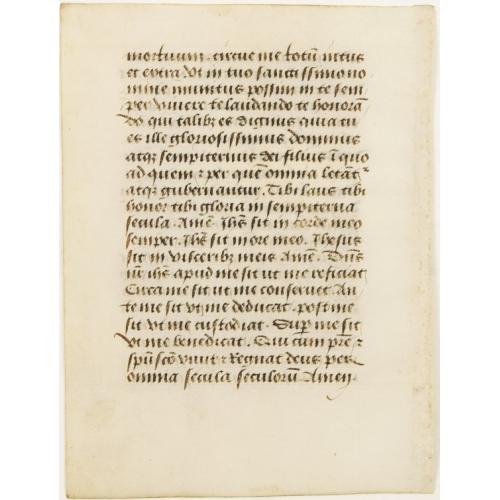 mortuum. circue me totū intus
et extra vt in tuo sanctissimo no
mine munitus possim in te sem
per viuere te laudando te honorā
do qui talibꝫ es dignus quia tu
es ille gloriosissimus dominus
atqꝫ sempiternus dei filius ī quo
ad quem ⁊ per quē omnia letāt᷑
atqꝫ gubernantur. Tibi laus tibi
honor tibi gloria in sempiterna
secula. Amē. Ihs̄ sit in corde meo
semper. Ihs̄ sit in ore meo. Ihesus
sit in visceribꝫ meis Amē. Dn̄s
nr̄ ihs̄ apud me sit ut me reficiat
Circa me sit ut me conseruet. An
te me sit vt me deducat. post me
sit vt me custodiat. Sup̄ me sit
vt me benedicat. Qui cum pr̄e ⁊
spū sc̄o viuit ⁊ Regnat deus per
omnia secula seculorū Amen.